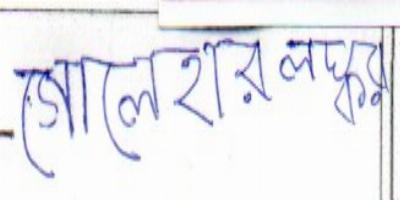 গোলেহার লস্কর